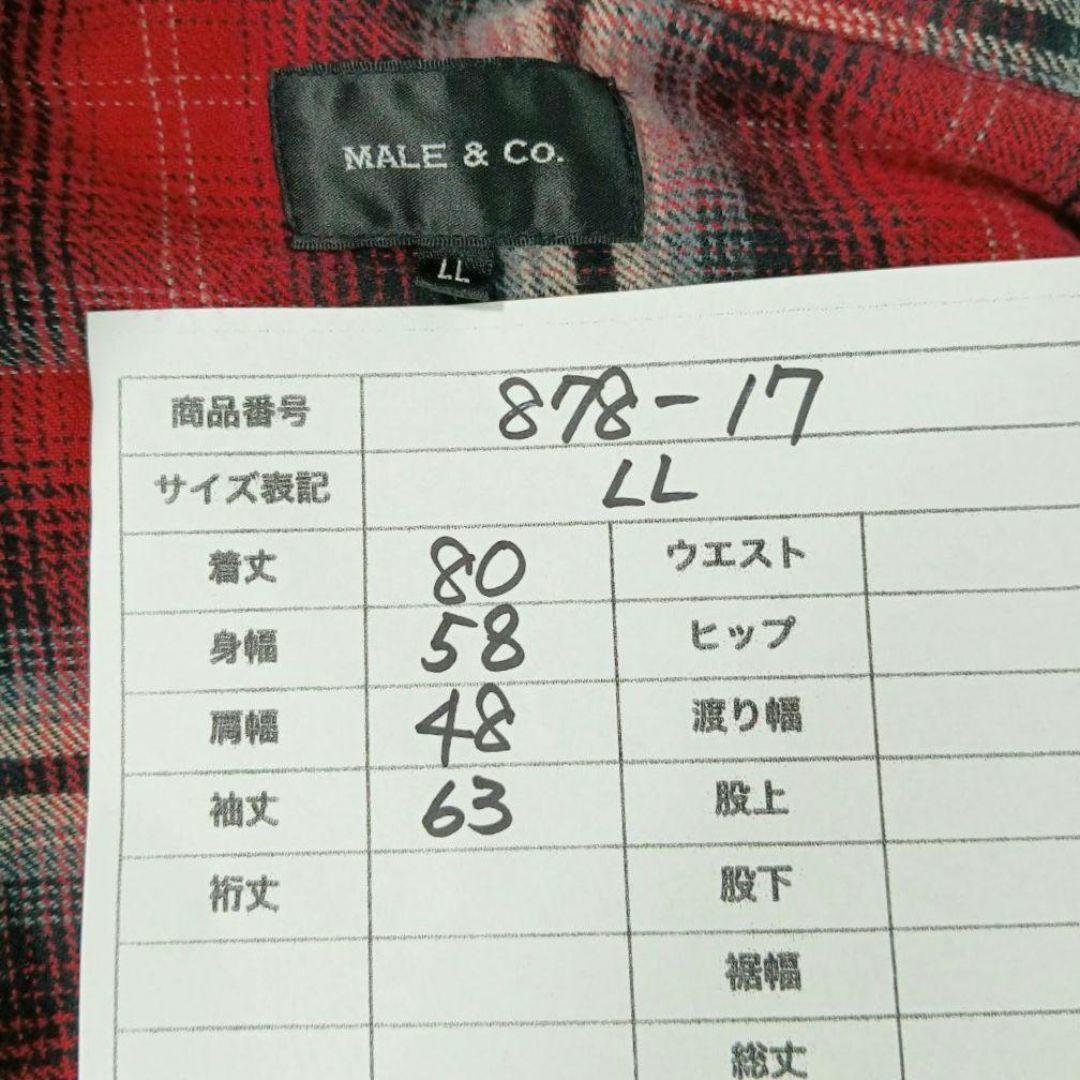 MALE & Co.
LL
商品番号 878-17
サイズ表記 LL
着丈 80 ウエスト
身幅 58 ヒップ
肩幅 48 渡り幅
袖丈 63 股上
裄丈 股下
裾幅
総丈